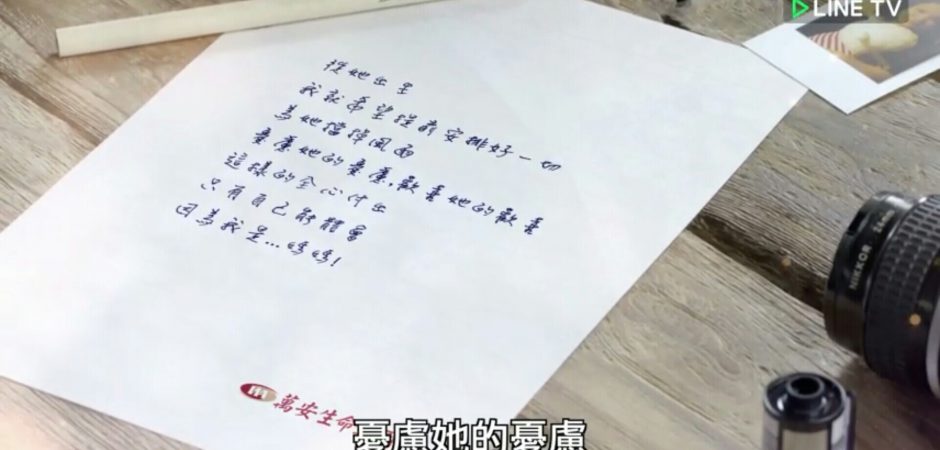 LINE TV
從她出生
我就希望提前安排好一切
為她擋掉風雨
憂慮她的憂慮,歡喜她的歡喜
這樣的全心付出
只有自己能體會
因為我是...媽媽!
NIKKOR
萬安生命
憂慮她的憂慮